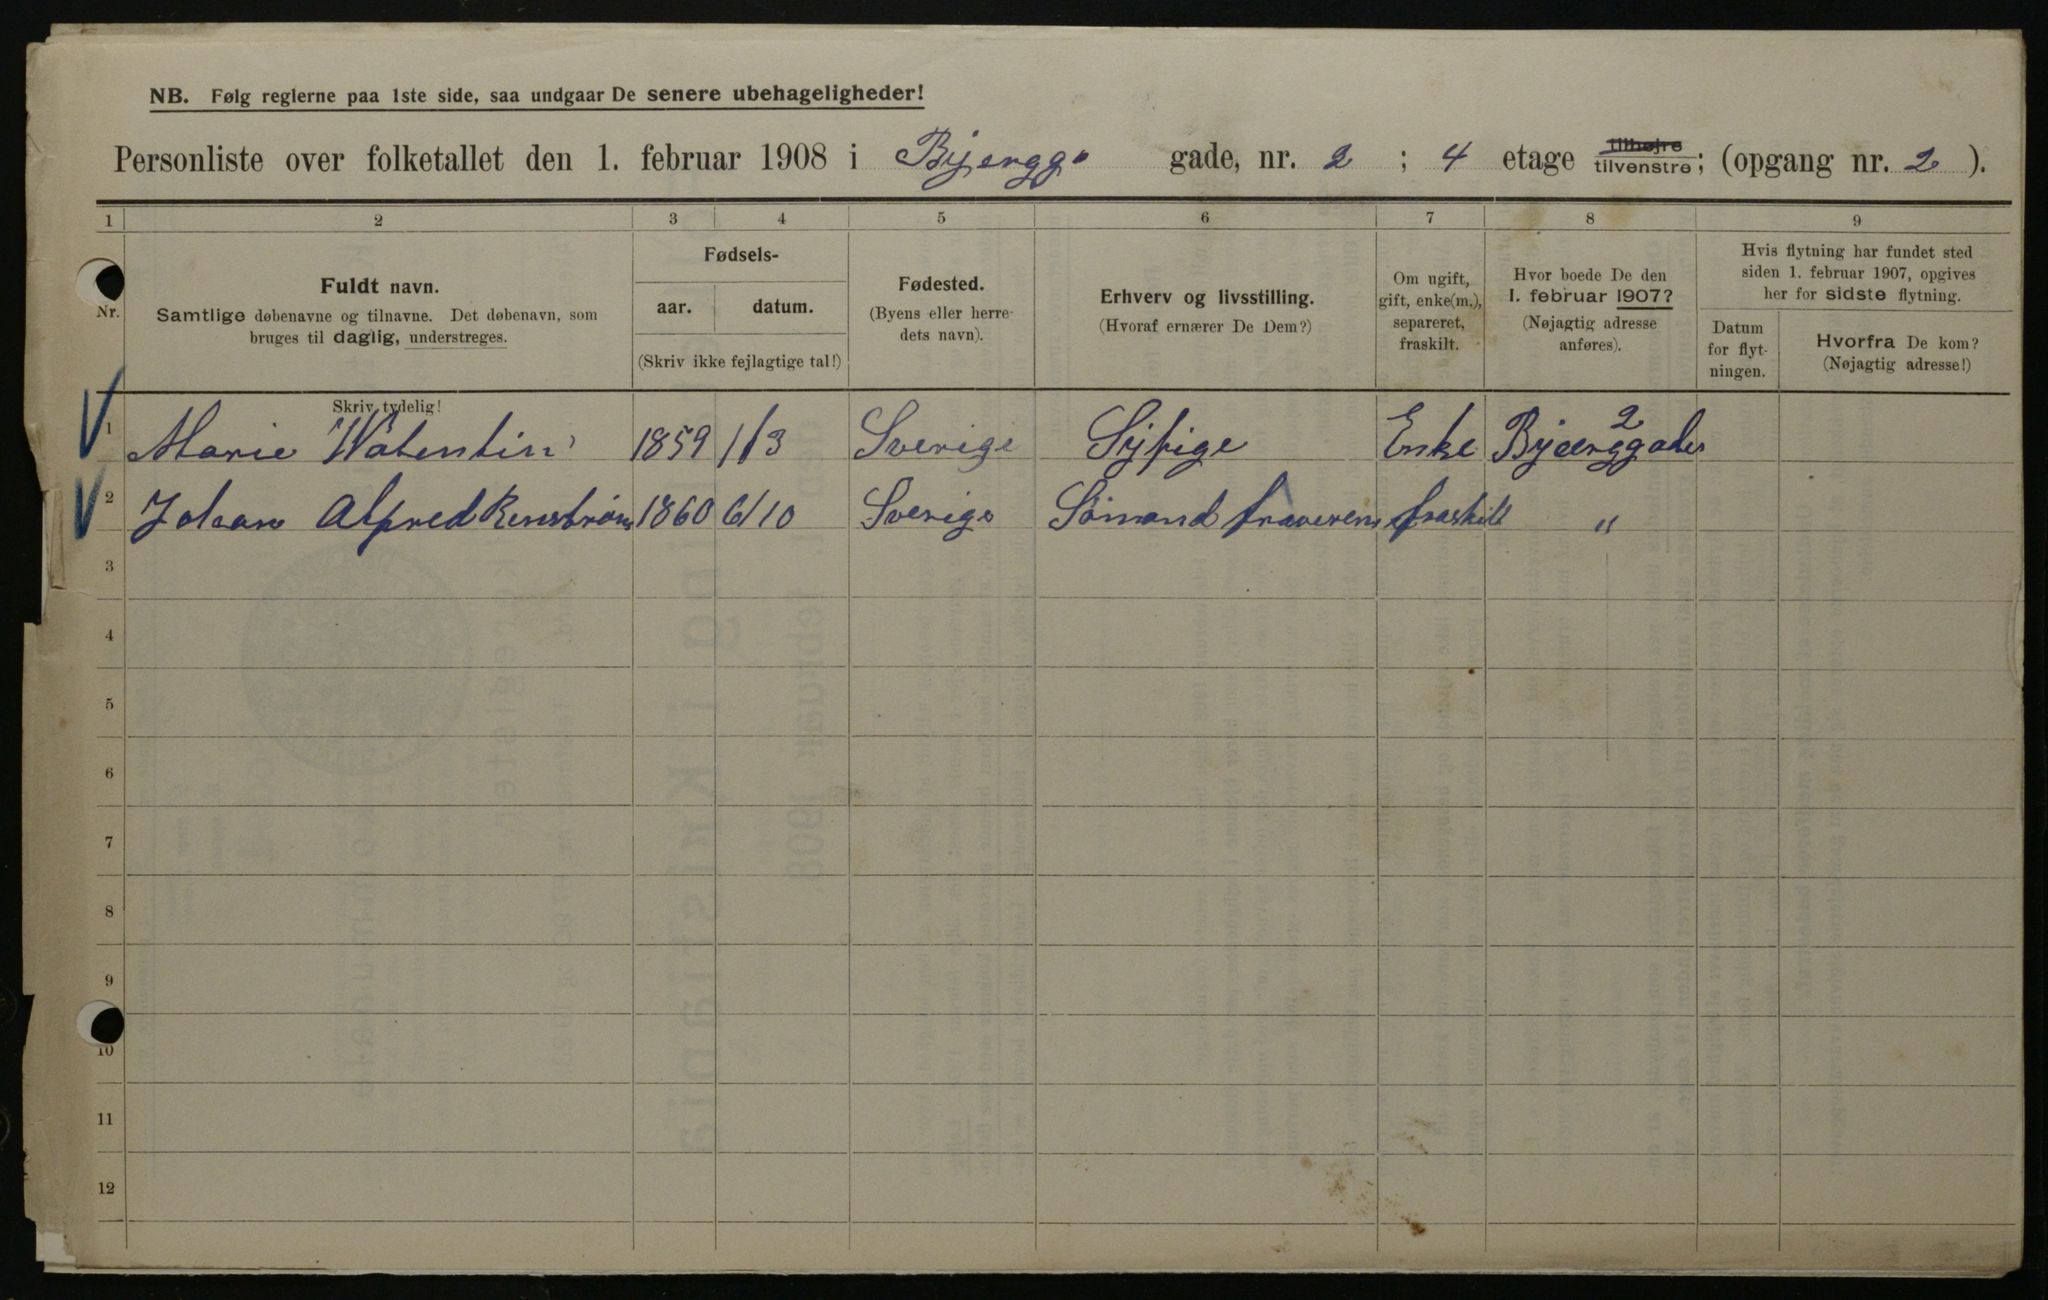 NB. Følg reglerne paa 1ste side, saa undgaar De senere ubehageligheder!
Personliste over folketallet den 1. februar 1908 i Bjergg. gade, nr. 2 ; 4 etage tilhøjre tilvenstre; (opgang nr. 2 ).
1 2 3 4 5 6 7 8 9
Nr.
Fuldt navn.
Samtlige døbenavne og tilnavne. Det døbenavn, som
bruges til daglig, understreges.
Skriv tydelig!
Fødsels-
aar. datum.
(Skriv ikke fejlagtige tal!)
Fødested.
(Byens eller herre-
dets navn).
Erhverv og livsstilling.
(Hvoraf ernærer De Dem?)
Om ugift,
gift, enke(m.),
separeret,
fraskilt.
Hvor boede De den
1. februar 1907?
(Nøjagtig adresse
anføres).
Hvis flytning har fundet sted
siden 1. februar 1907, opgives
her for sidste flytning.
Datum
for flyt-
ningen.
Hvorfra De kom?
(Nøjagtig adresse!)
1 Marie 1859 1/3 Sverige Sypige Enke 2
2 Johan Alfred Renstrøm 1860 6/10 Sverige Sømand fraskilt "
3
4
5
6
7
8
9
10
11
12